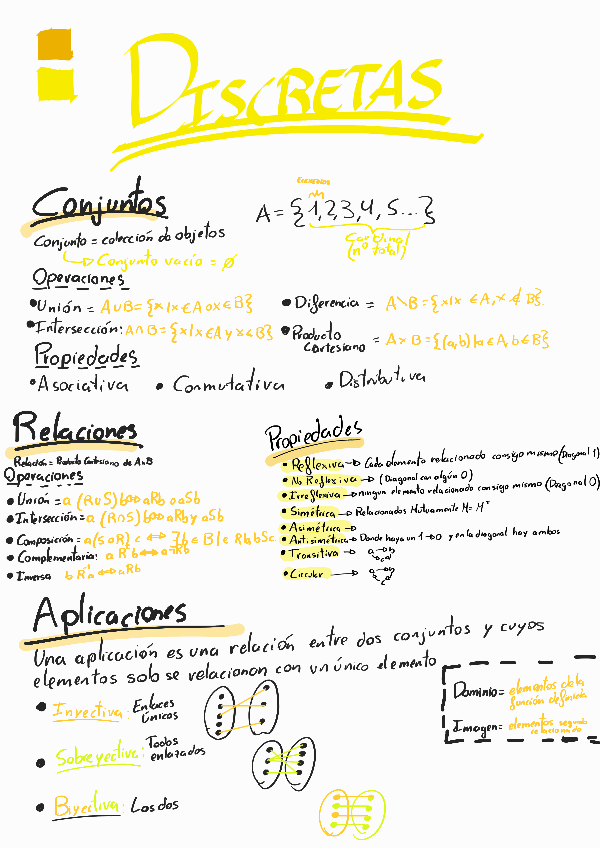 DISCRETAS
Conjuntos
Elementos
A = {1,2,3,4,5...}
Cardinal
(nº total)
Conjunto = colección de objetos
Conjunto vacío = ∅
Operaciones
• Unión = A∪B = {x|x∈A o x∈B}
• Diferencia = A\B = {x|x∈A, x∉B}
• Intersección: A∩B = {x|x∈A y x∈B}
• Producto Cartesiano = A×B = {(a,b)|a∈A, b∈B}
Propiedades
• Asociativa • Conmutativa • Distributiva
Relaciones
Relación = Producto Cartesiano de A×B
Operaciones
• Unión = a (R∪S) b ⇔ aRb o aSb
• Intersección: a (R∩S) b ⇔ aRb y aSb
• Composición = a(S∘R) c ⇔ ∃b∈B | aRb y bSc
• Complementaria:
• Inversa b R⁻¹ a ⇔ aRb
Propiedades
• Reflexiva → Cada elemento relacionado consigo mismo (Diagonal 1)
• No Reflexiva → (Diagonal con algún 0)
• Irreflexiva → ningun elemento relacionado consigo mismo (Diagonal 0)
• Simétrica → Relacionados Mutuamente M = Mᵀ
• Asimétrica →
• Antisimétrica → Donde haya un 1 → 0 y en la diagonal hay ambos
• Transitiva → a b c
• Circular → a b c
Aplicaciones
Una aplicación es una relación entre dos conjuntos y cuyos
elementos solo se relacionan con un único elemento
• Inyectiva: Enlaces únicos
• Sobreyectiva: Todos enlazados
• Biyectiva: Los dos
Dominio = elementos de la función definida
Imagen = elementos segundo relacionado